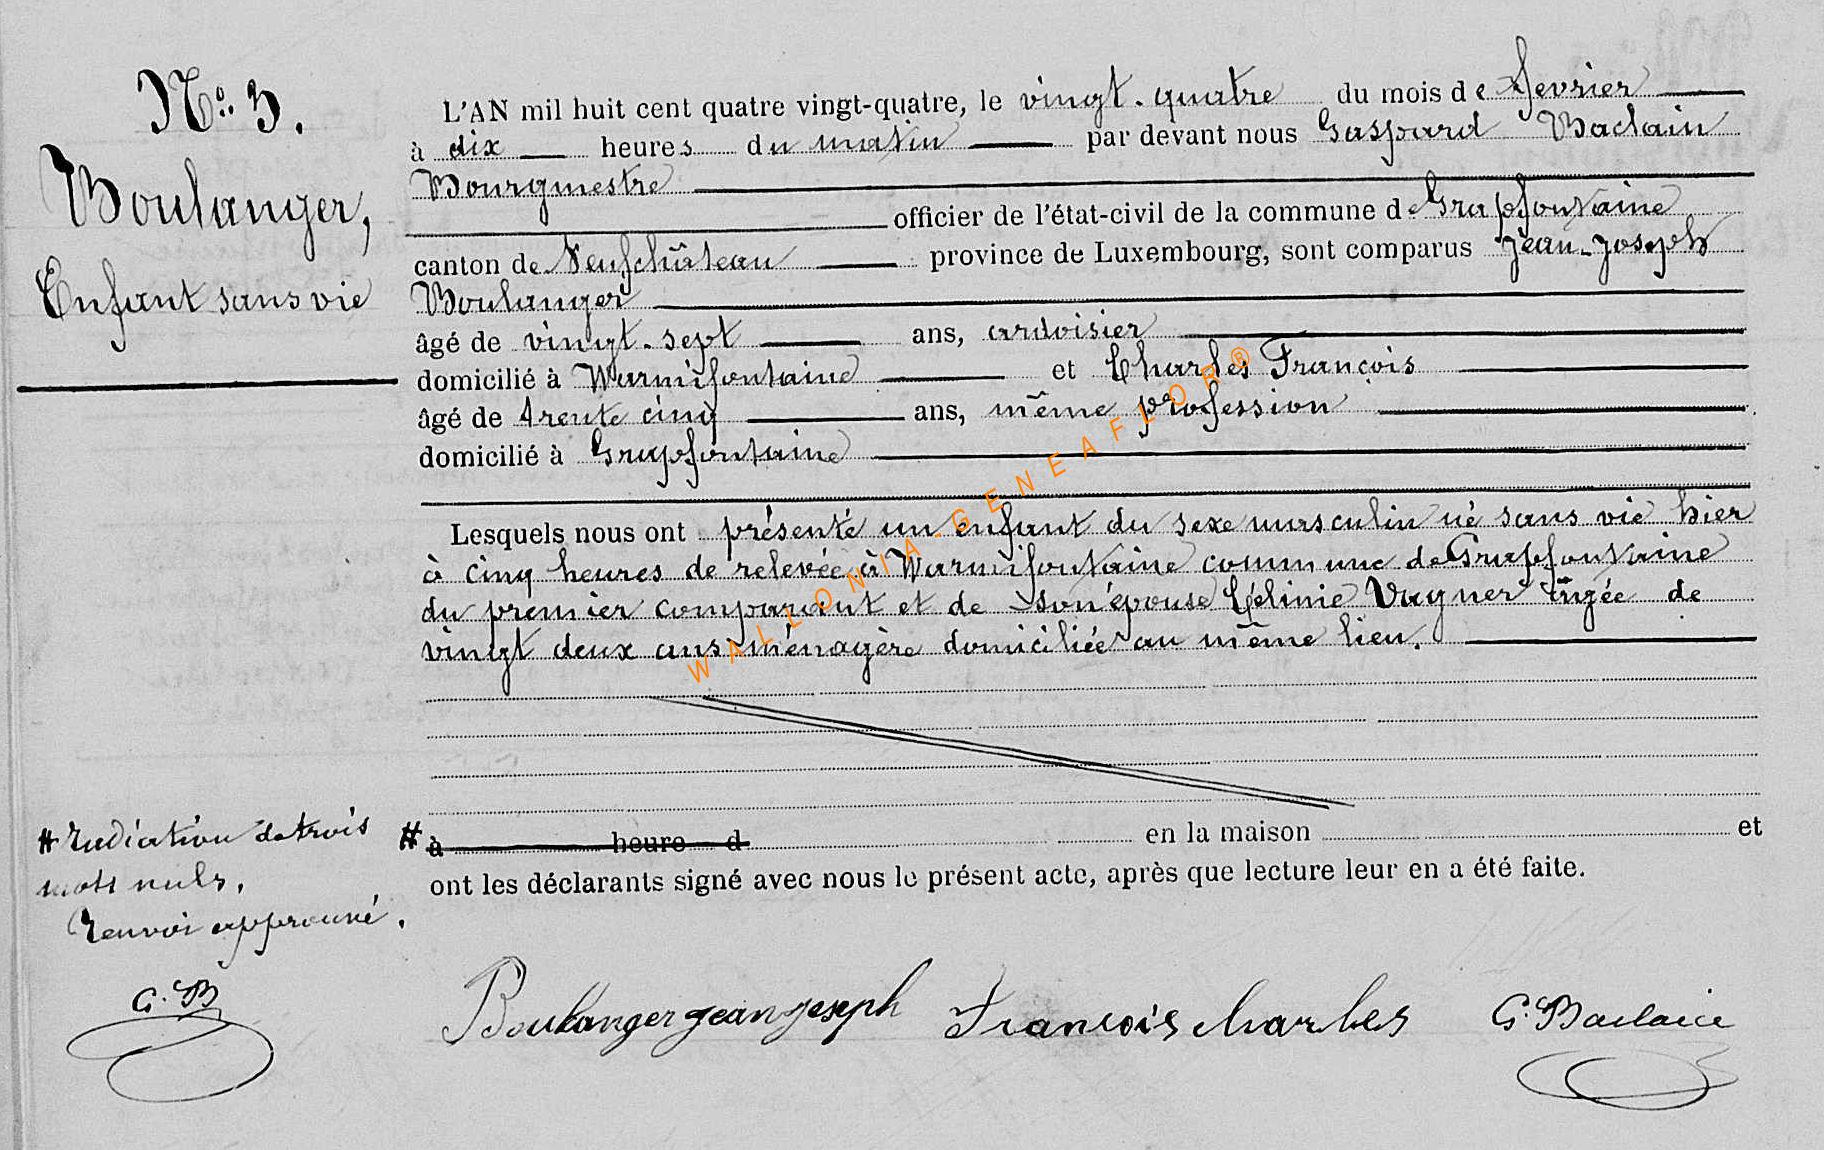 N° 3.
Boulanger,
Enfant sans vie
L'AN mil huit cent quatre vingt-quatre, le vingt-quatre du mois de fevrier
à dix heures du matin par devant nous Gaspard Baclain
Bourgmestre
officier de l'état-civil de la commune de Grapfontaine
canton de Neufchâteau province de Luxembourg, sont comparus Jean-Joseph
Boulanger
âgé de vingt-sept ans, ardoisier
domicilié à Warmifontaine et Charles François
âgé de trente cinq ans, même profession
domicilié à Grapfontaine
Lesquels nous ont présenté un enfant du sexe masculin né sans vie hier
à cinq heures de relevée à Warmifontaine commune de Grapfontaine
du premier comparant et de son épouse Célinie Wagner âgée de
vingt deux ans ménagère domiciliée au même lieu.
# à heure d en la maison et
ont les déclarants signé avec nous le présent acte, après que lecture leur en a été faite.
# radiation de trois
mots nuls.
Renvoi approuvé.
G. B
Boulanger jean joseph François charles G. Baclain
WALLONIA-GENEAFLOR®